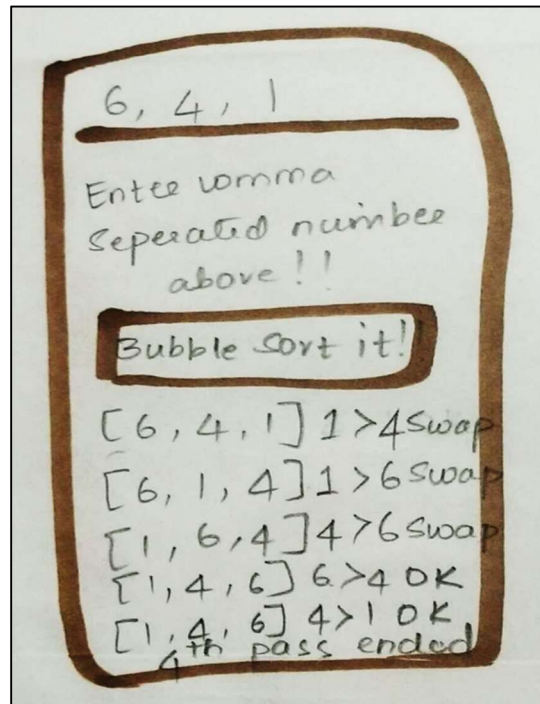 6, 4, 1
Enter comma
Seperated number
above!!
Bubble Sort it!
[6, 4, 1] 1>4 Swap
[6, 1, 4] 1>6 Swap
[1, 6, 4] 4>6 Swap
[1, 4, 6] 6>4 OK
[1, 4, 6] 4>1 OK
4th pass ended